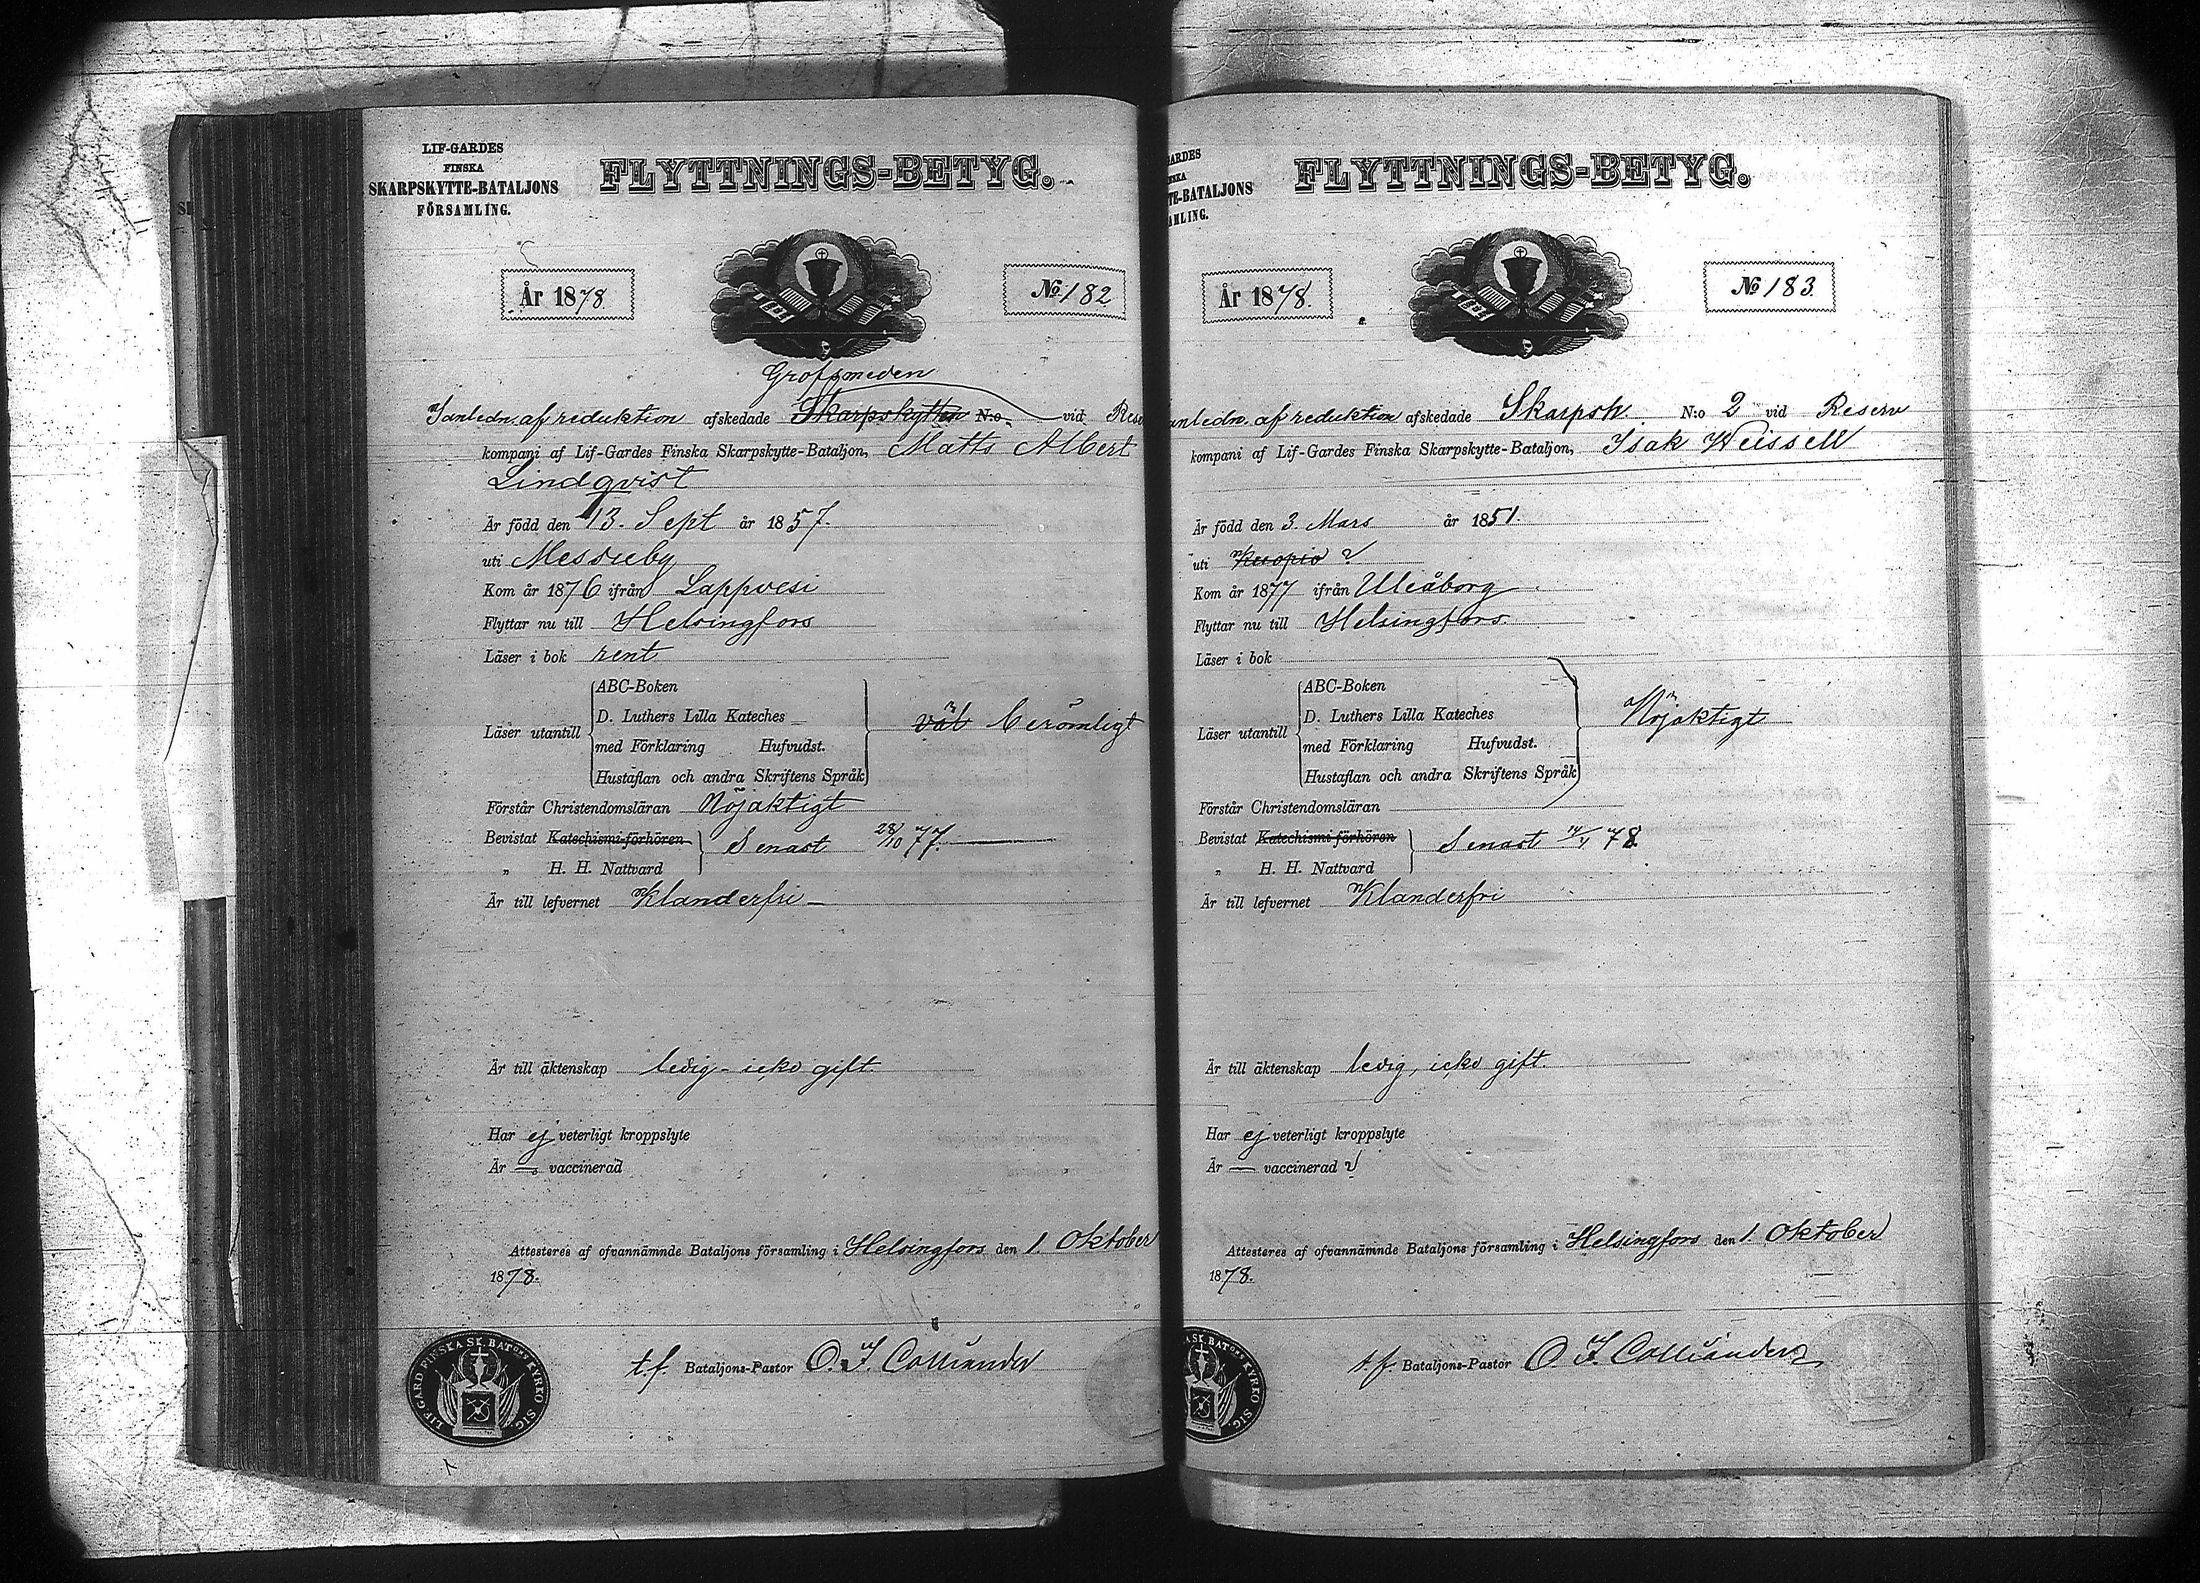 LIF-GARDES
FINSKA
SKARPSKYTTE-BATALJONS
FÖRSAMLING.
FLYTTNINGS-BETYG.
År 1878
No 182
Grofsmeden
I anledn. af reduktion afskedade Skarpskytten N:o vid Res
kompani af Lif-Gardes Finska Skarpskytte-Bataljon, Matts Albert
Lindqvist
Är född den 13. Sept år 1857.
uti Messuby
Kom år 1876 ifrån Lappvesi
Flyttar nu till Helsingfors
Läser i bok rent
Läser utantill
ABC-Boken
D. Luthers Lilla Kateches
med Förklaring Hufvudst.
Hustaflan och andra Skriftens Språk
väl berömligt
Förstår Christendomsläran Nöjaktigt
Bevistat Katechismi-förhören
„ H. H. Nattvard
Senast 28/10 77.
Är till lefvernet Klanderfri
Är till äktenskap ledig - icke gift.
Har ej veterligt kroppslyte
Är — vaccinerad
Attesteres af ofvannämnde Bataljons församling i Helsingfors den 1. Oktober
1878.
t.f. Bataljons-Pastor O. I. Colliander
LIF-GARD. FINSKA SK. BATONS KYRKO SIG.
ARDES
TE-BATALJONS
FLYTTNINGS-BETYG.
År 1878.
No 183.
anledn. af reduktion afskedade Skarpsk. N:o 2 vid Reserv
kompani af Lif-Gardes Finska Skarpskytte-Bataljon, Isak Weissell
Är född den 3. Mars år 1851.
uti Kuopio ?
Kom år 1877 ifrån Uleåborg
Flyttar nu till Helsingfors.
Läser i bok
Läser utantill
ABC-Boken
D. Luthers Lilla Kateches
med Förklaring Hufvudst.
Hustaflan och andra Skriftens Språk
Nöjaktigt
Förstår Christendomsläran
Bevistat Katechismi-förhören
„ H. H. Nattvard
Senast 78
Är till lefvernet Klanderfri
Är till äktenskap ledig, icke gift.
Har ej veterligt kroppslyte
Är — vaccinerad ?
Attesteres af ofvannämnde Bataljons församling i Helsingfors den 1. Oktober
1878.
t.f. Bataljons-Pastor O. I. Colliander